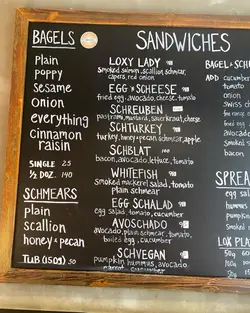 BAGELS
plain
poppy
sesame
onion
everything
cinnamon
raisin
SINGLE 25
½ DOZ. 140
SCHMEARS
plain
scallion
honey & pecan
TUB (150g) 50
SANDWICHES
LOXY LADY
smoked salmon, scallion schmear,
capers, red onion
EGG & SCHEESE
fried egg, avocado, cheese, tomato
SCHREUBEN
pastrami, mustard, sauerkraut, cheese
SCHTURKEY
turkey, honey + pecan schmear, apple
SCHBLAT
bacon, avocado, lettuce, tomato
WHITEFISH
smoked mackerel salad, tomato
plain schmear
EGG SCHALAD
egg salad, tomato, cucumber
AVOSCHADO
avocado, plain schmear, tomato,
boiled egg, cucumber
SCHVEGAN
pumpkin hummus, avocado
carrot, cucumber
BAGEL & SCH
ADD cucumber
tomato
onion
SPREA
egg sa
hummus
pumpk
smoke
LOX PLA
50g
100g